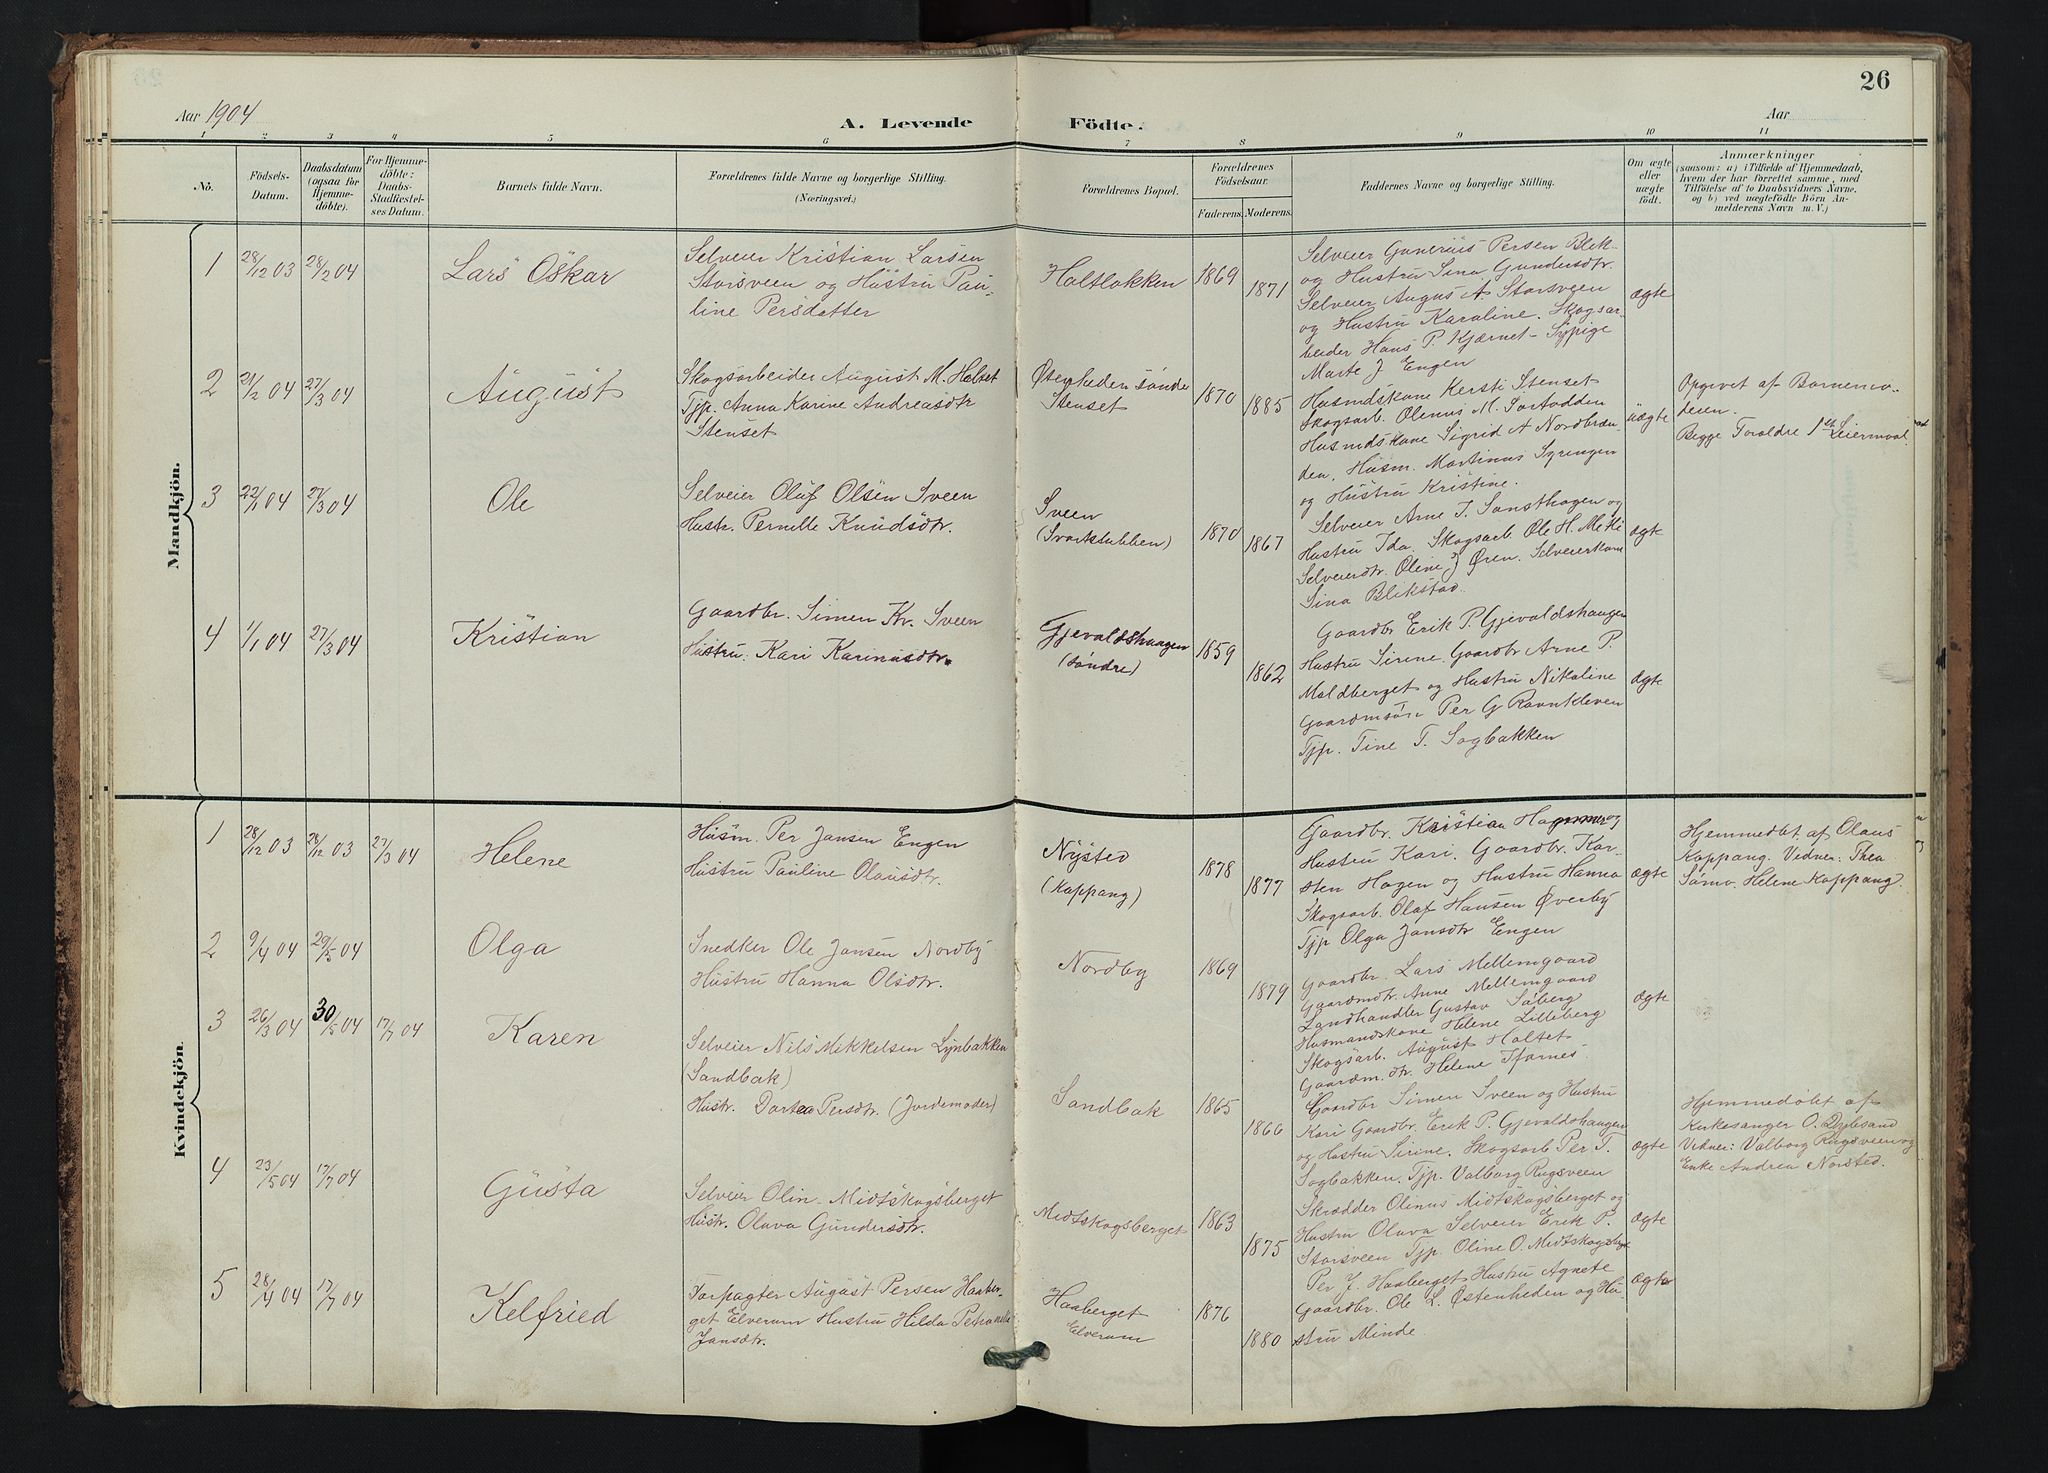 26
Aar 1904
A. Levende Födte.
Aar
1 2 3 4 5 6 7 8 9 10 11
No.
Födsels-Datum.
Daabsdatum (ogsaa for Hjemme-döbte).
For Hjemme-döbte: Daabs-Stadfæstel-ses Datum.
Barnets fulde Navn.
Forældrenes fulde Navne og borgerlige Stilling.
(Næringsvei.)
Forældrenes Bopæl.
Forældrenes Födselsaar.
Faderens. Moderens.
Faddernes Navne og borgerlige Stilling.
Om ægte eller uægte födt.
Anmærkninger
(saasom: a) i Tilfælde af Hjemmedaab,
hvem der har forrettet samme, med
Tilföielse af to Daabsvidners Navne.
og b) ved uægtefödte Börn An-
melderens Navn m. V.)
Mandkjön.
1 28/12 03 28/2 04 Lars Oskar
Selveier Kristian Larsen
Storsveen og Hustru Pau-
line Persdatter
Holtløkken 1869 1871
Selveier Gunerius Persen Blik-
og Hustru Sina Gundersdtr.
Selveier Augus A Storsveen
og Hustru Karoline. Skogsar-
beider Hans P. Kjærnet - Sypige
Marte J Engen
ægte
2 21/2 04 27/3 04 August
Skogsarbeider August M. Holset
Tjp. Anna Karine Andreasdtr
Stenset
Østenheden søndre
Stenset
1870 1885
Husmdskone Kersti Stenset
Skogsarb. Olinus M. Sortodden
Husmdskone Sigrid A Nordbræn-
den, Husm. Martinus Syrengen
og Hustru Kristine.
uægte
Opgivet af Barnemo-
deren.
Begge Foraldre 1ste Leiermaal
3 22/1 04 27/3 04 Ole
Selveier Oluf Olsen Sveen
Hustr. Pernille Knudsdtr.
Sveen
(Svartstubben)
1870 1867
Selveier Arne T. Sansthagen og
Hustru Ida. Skogsarb. Ole H. Moki
Selveierdtr. Oline J Øren. Selveierkone
Sina Blikstad.
ægte
4 1/1 04 27/3 04 Kristian
Gaardbr. Simen Kr. Sveen
Hustru: Kari Karinusdtr.
Gjevaldshaugen
(søndre)
1859 1862
Gaardbr Erik P. Gjevaldshaugen
Hustru Sirene. Gaardbr Arne P.
Moldberget og Hustru Nikoline
Gaardmsøn Per G Ravnkleven
Tjp. Tine T. Sagbakken
ægte
Kvindekjön.
1 28/12 03 28/12 03 27/3 04 Helene
Husm. Per Jansen Engen
Hustru Pauline Olausdtr.
Nysted
(Koppang)
1878 1877
Gaardbr. Kristian Hammer og
Hustru Kari. Gaardbr. Kar-
sten Hagen og Hustru Hanna
Skogsarb. Olaf Hansen Øverby
Tjp Olga Jansdtr Engen
ægte
Hjemmedbt af Olaus
Koppang. Vidner: Thea
Sørmo. Helene Koppang.
2 9/4 04 29/5 04 Olga
Snedker Ole Jansen Nordby
Hustru Hanna Olsdtr.
Nordby 1869 1879
Gaardbr. Lars Mellemgaard
Gaardmdtr. Anne Mellemgaard
Landhandler Gustav Søberg
Husmandskone Helene Lilleberg
Skogsarb. August Holtet
Gaardm.dtr. Helene Tfornes
ægte
3 26/3 04 30/5 04 17/7 04 Karen
Selveier Nils Mekkelsen Lynbakken
(Sandbak)
Hustr. Dortea Persdtr. (Jordemoder)
Sandbak 1865 1866
Gaardbr Simen Sveen og Hustru
Kari Gaardbr. Erik P. Gjevaldshaugen
og Hustru Sirine. Skogsarb Per T.
Sagbakken. Tjp. Valborg Rugsveen
ægte
Hjemmedøbt af
Kirkesanger O. Dybsand
Vidner: Valborg Rugsveen og
Enke Andrea Norsted.
4 23/5 04 17/7 04 Gusta
Selveier Olin Midtskogsberget
Hustr. Olava Gundersdtr.
Midtskogsberget 1863 1875
Skrædder Olinus Midtskogsberget og
Hustru Olava Selveier Erik P.
Storsveen Tjp. Oline O. Midtskogsberget
ægte
5 28/4 04 17/7 04 Kelfried
Forpagter August Persen Haaber-
get Elverum Hustru Hilda Petronelle
Jansdtr.
Haaberget
Elverum
1876 1880
Per J. Haaberget Hustru Agnete
Gaardbr. Ole L. Østenheden og Hu-
stru Minde
ægte